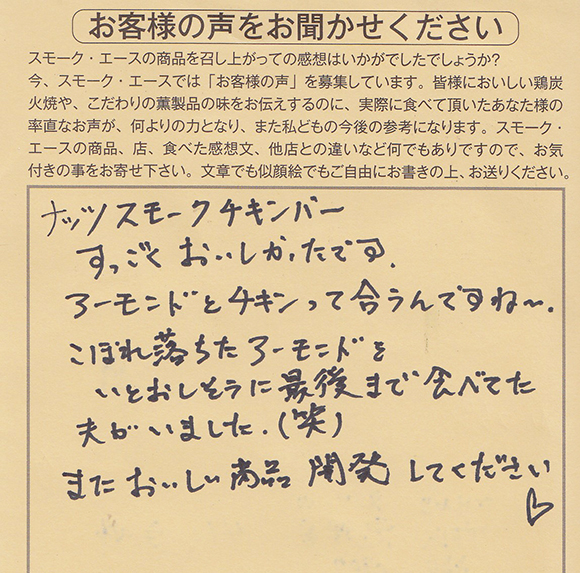 お客様の声をお聞かせください
スモーク・エースの商品を召し上がっての感想はいかがでしたでしょうか?
今、スモーク・エースでは「お客様の声」を募集しています。皆様においしい鶏炭
火焼や、こだわりの薫製品の味をお伝えするのに、実際に食べて頂いたあなた様の
率直なお声が、何よりの力となり、また私どもの今後の参考になります。スモーク・
エースの商品、店、食べた感想文、他店との違いなど何でもありですので、お気
付きの事をお寄せ下さい。文章でも似顔絵でもご自由にお書きの上、お送りください。
ナッツスモークチキンバー
すっごくおいしかったです.
アーモンドとチキンって合うんですね〜.
こぼれ落ちたアーモンドを
いとおしそうに最後まで食べてた
夫がいました.(笑)
またおいしい商品開発してください
♡